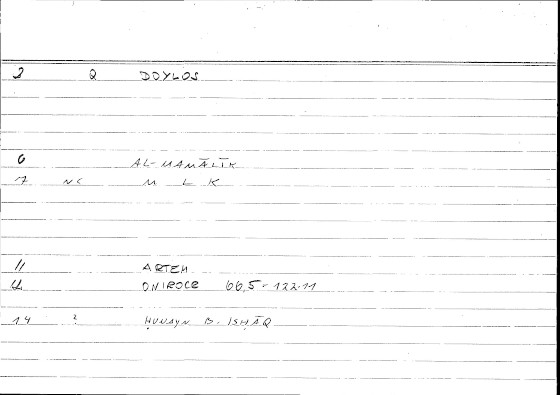 2 Q DOYLOS
6 AL-MAMĀLĪK
7 NC M L K
11 ARTEM.
12 ONIROCR 66,5-122.11
14 ? ḤUNAYN B. ISḤĀQ